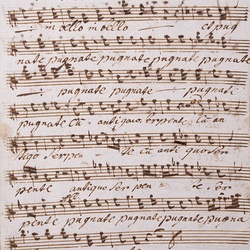 in cello in cello et pug
nate pugnate pugnate pugnate
pugnate pugnate pug
pugnate cū antiquo serpente cū an
tiquo serpen te cū anti quo ser
pente antiquo ser pen te et
pente pugnate pugnate pugnate pugna